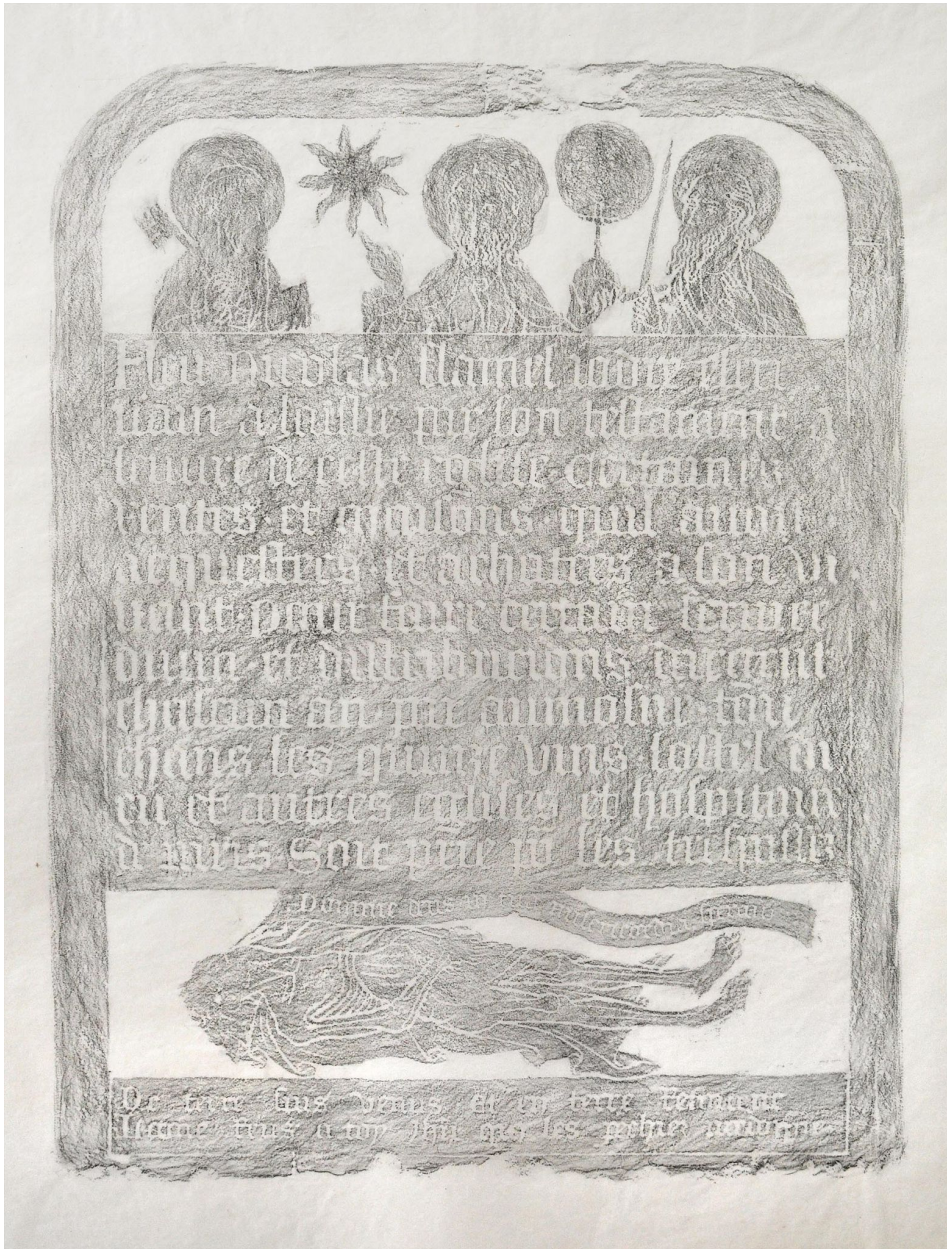 Feu Nicolas flamel iadis escri
uain a laissie par son testament a
leuure de ceste eglise certaines
rentes et maisons quil auoit
acquestees et achatees a son vi
uant pour faire certain seruice
diuin et distribucions dargent
chascun an par aumosne tou
chans les quinze vins lostel di
eu et autres eglises et hospitaux
de paris Soit prie les trespasses
Domine deus in tua misericordia speraui
De terre suis venus et en terre retourne
Lame rens a toy Jhu qui les pechiez pardonne